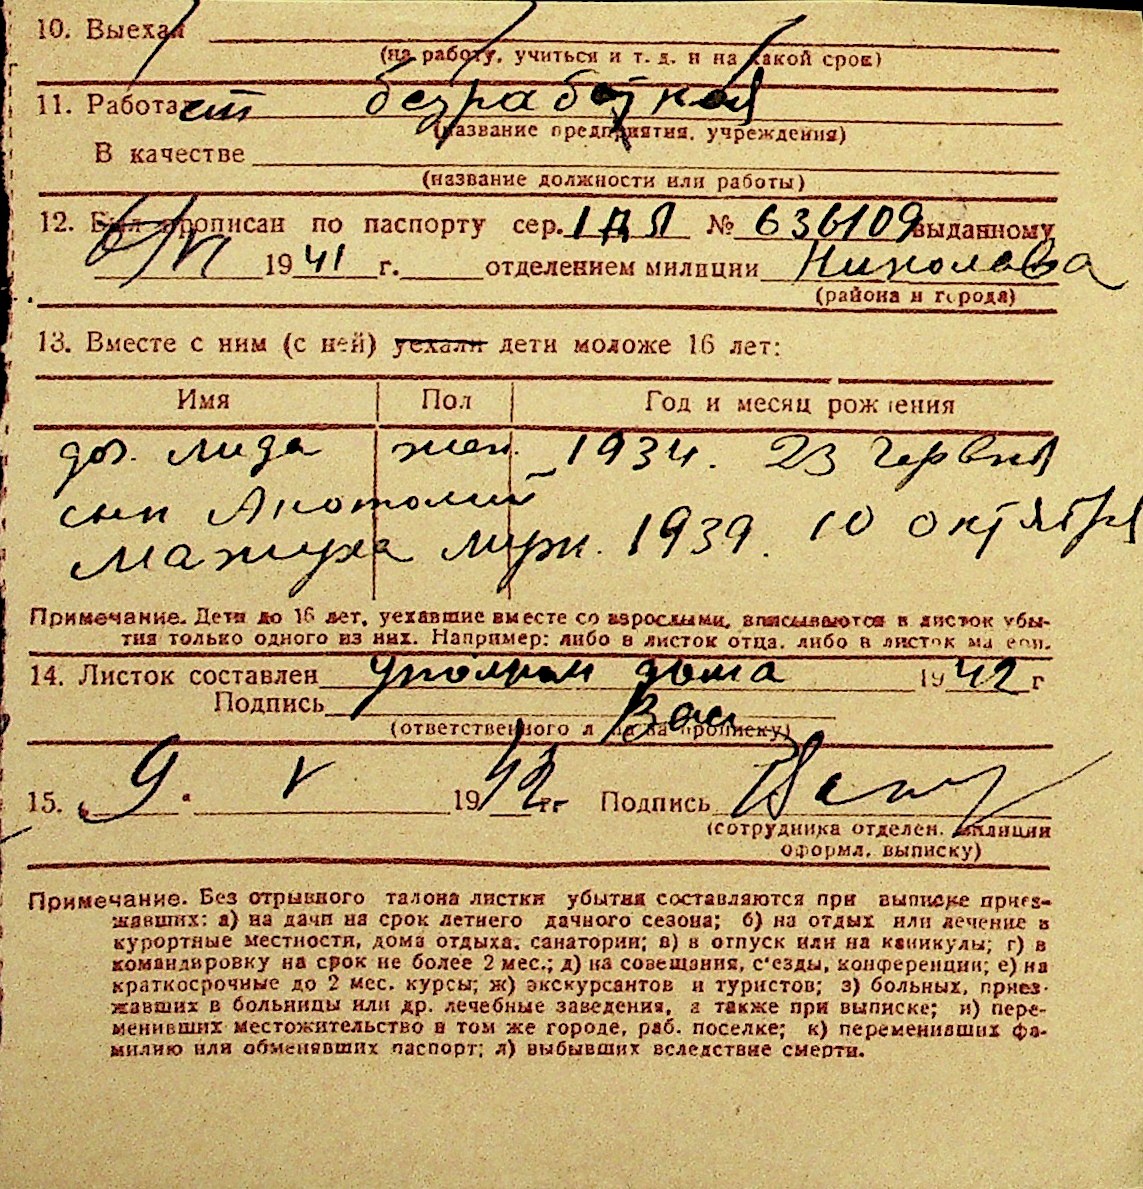 10. Выехал
(на работу, учиться и т. д. и на какой срок)
11. Работает безработной
(название предприятия, учреждения)
В качестве
(название должности или работы)
12. Был прописан по паспорту сер. IДЛ № 636109 выданному
1941 г. отделением милиции Николаева
(района и города)
13. Вместе с ним (с ней) уехали дети моложе 16 лет:
Имя Пол Год и месяц рождения
доч. Лида жен. 1934. 23 червня
сын Анатолий
муж. 1939. 10 октября
Примечание. Дети до 16 лет, уехавшие вместе со взрослыми, вписываются в листок убы-
тия только одного из них. Например: либо в листок отца, либо в листок матери.
14. Листок составлен дома 1942 г
Подпись Вас
(ответственного лица за прописку)
15. 9. V 1942 г Подпись
(сотрудника отделен. милиции
оформл. выписку)
Примечание. Без отрывного талона листки убытия составляются при выписке приез-
жавших: а) на дачи на срок летнего дачного сезона; б) на отдых или лечение в
курортные местности, дома отдыха, санатории; в) в отпуск или на каникулы; г) в
командировку на срок не более 2 мес.; д) на совещания, с'езды, конференции; е) на
краткосрочные до 2 мес. курсы; ж) экскурсантов и туристов; з) больных, приез-
жавших в больницы или др. лечебные заведения, а также при выписке; и) пере-
менивших местожительство в том же городе, раб. поселке; к) переменивших фа-
милию или обменявших паспорт; л) выбывших вследствие смерти.